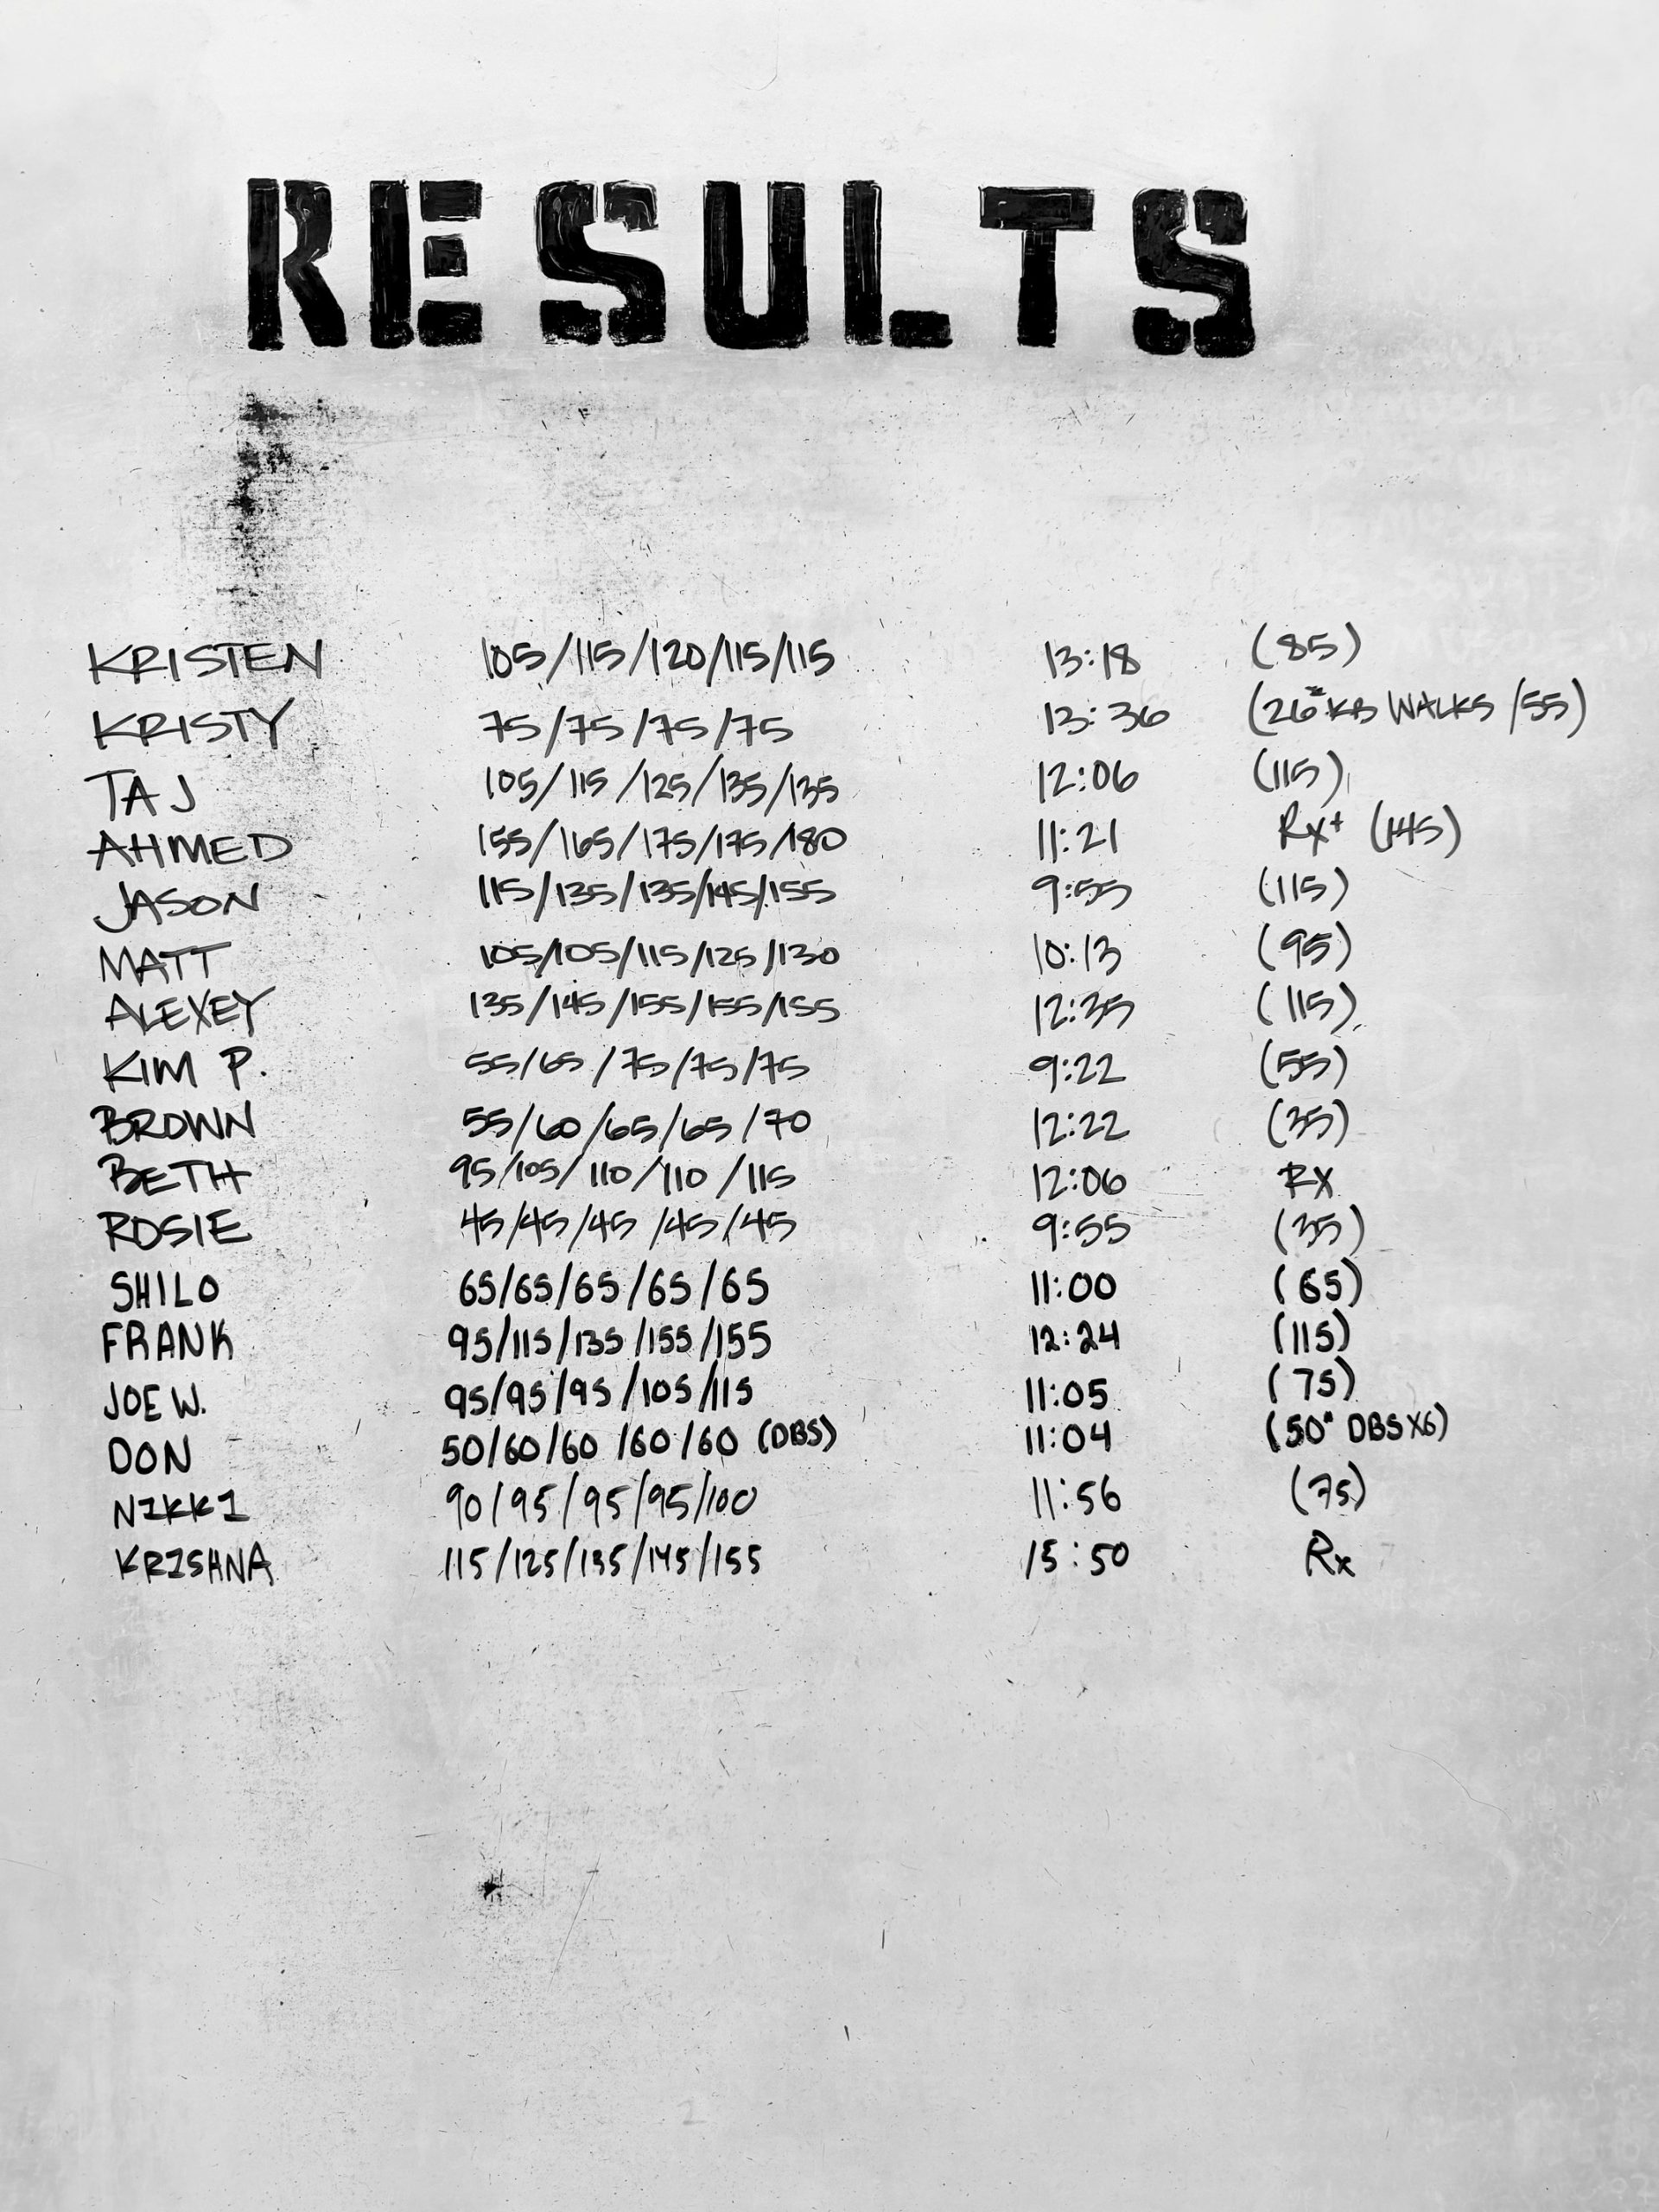 RESULTS
KRISTEN 105/115/120/115/115 13:18 (85)
KRISTY 75/75/75/75 13:36 (26# KB WALKS /55)
TAJ 105/115/125/135/135 12:06 (115)
AHMED 155/165/175/175/180 11:21 Rx+ (145)
JASON 115/135/135/145/155 9:55 (115)
MATT 105/105/115/125/130 10:13 (95)
ALEXEY 135/145/155/155/155 12:35 (115)
KIM P. 55/65/75/75/75 9:22 (55)
BROWN 55/60/65/65/70 12:22 (35)
BETH 95/105/110/110/115 12:06 RX
ROSIE 45/45/45/45/45 9:55 (35)
SHILO 65/65/65/65/65 11:00 (65)
FRANK 95/115/135/155/155 12:24 (115)
JOE W. 95/95/95/105/115 11:05 (75)
DON 50/60/60/60/60 (DBS) 11:04 (50# DBS X6)
NIKKI 90/95/95/95/100 11:56 (75)
KRISHNA 115/125/135/145/155 15:50 Rx